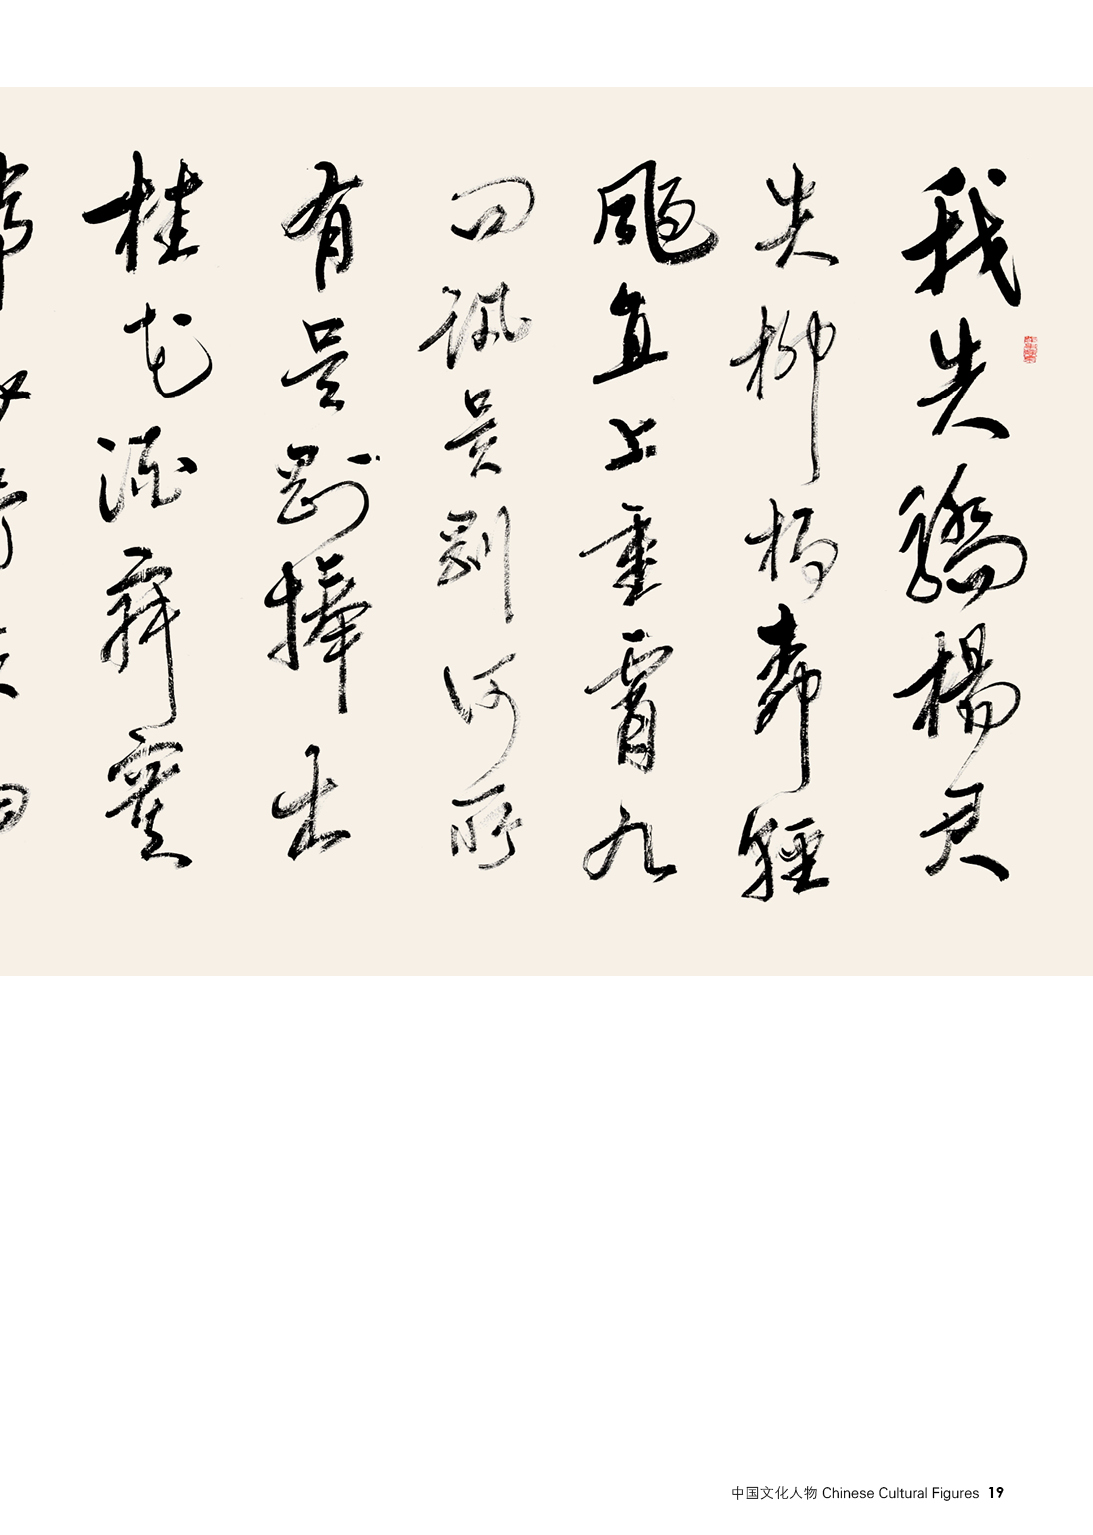 我失驕楊君
失柳楊柳輕
颺直上重霄九
問訊吳剛何所
有吳剛捧出
桂花酒寂寞
中国文化人物 Chinese Cultural Figures 19